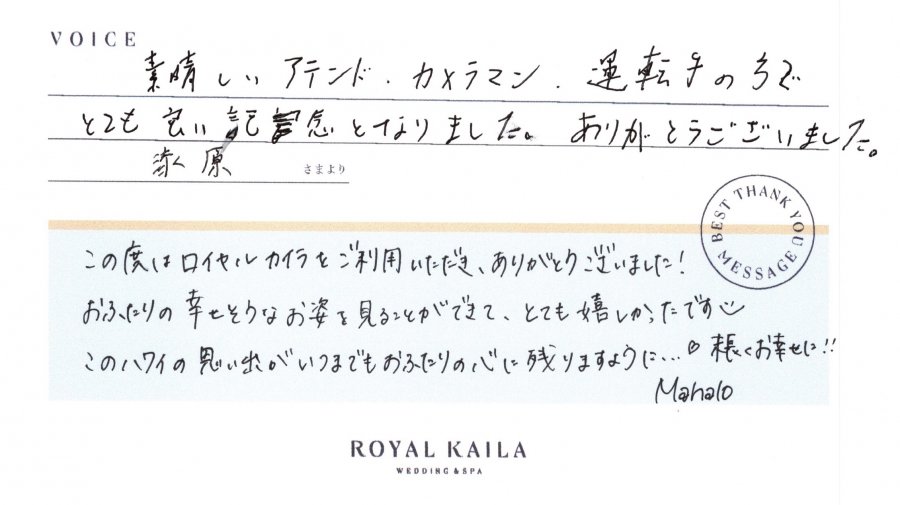 VOICE
素晴しいアテンド・カメラマン・運転手の方で
とても良い記念となりました。ありがとうございました。
原 さまより
BEST THANK YOU MESSAGE
この度はロイヤルカイラをご利用いただき、ありがとうございました!
おふたりの幸せそうなお姿を見ることができて、とても嬉しかったです
このハワイの思い出がいつまでもおふたりの心に残りますように… 末長くお幸せに!!
Mahalo
ROYAL KAILA
WEDDING & SPA